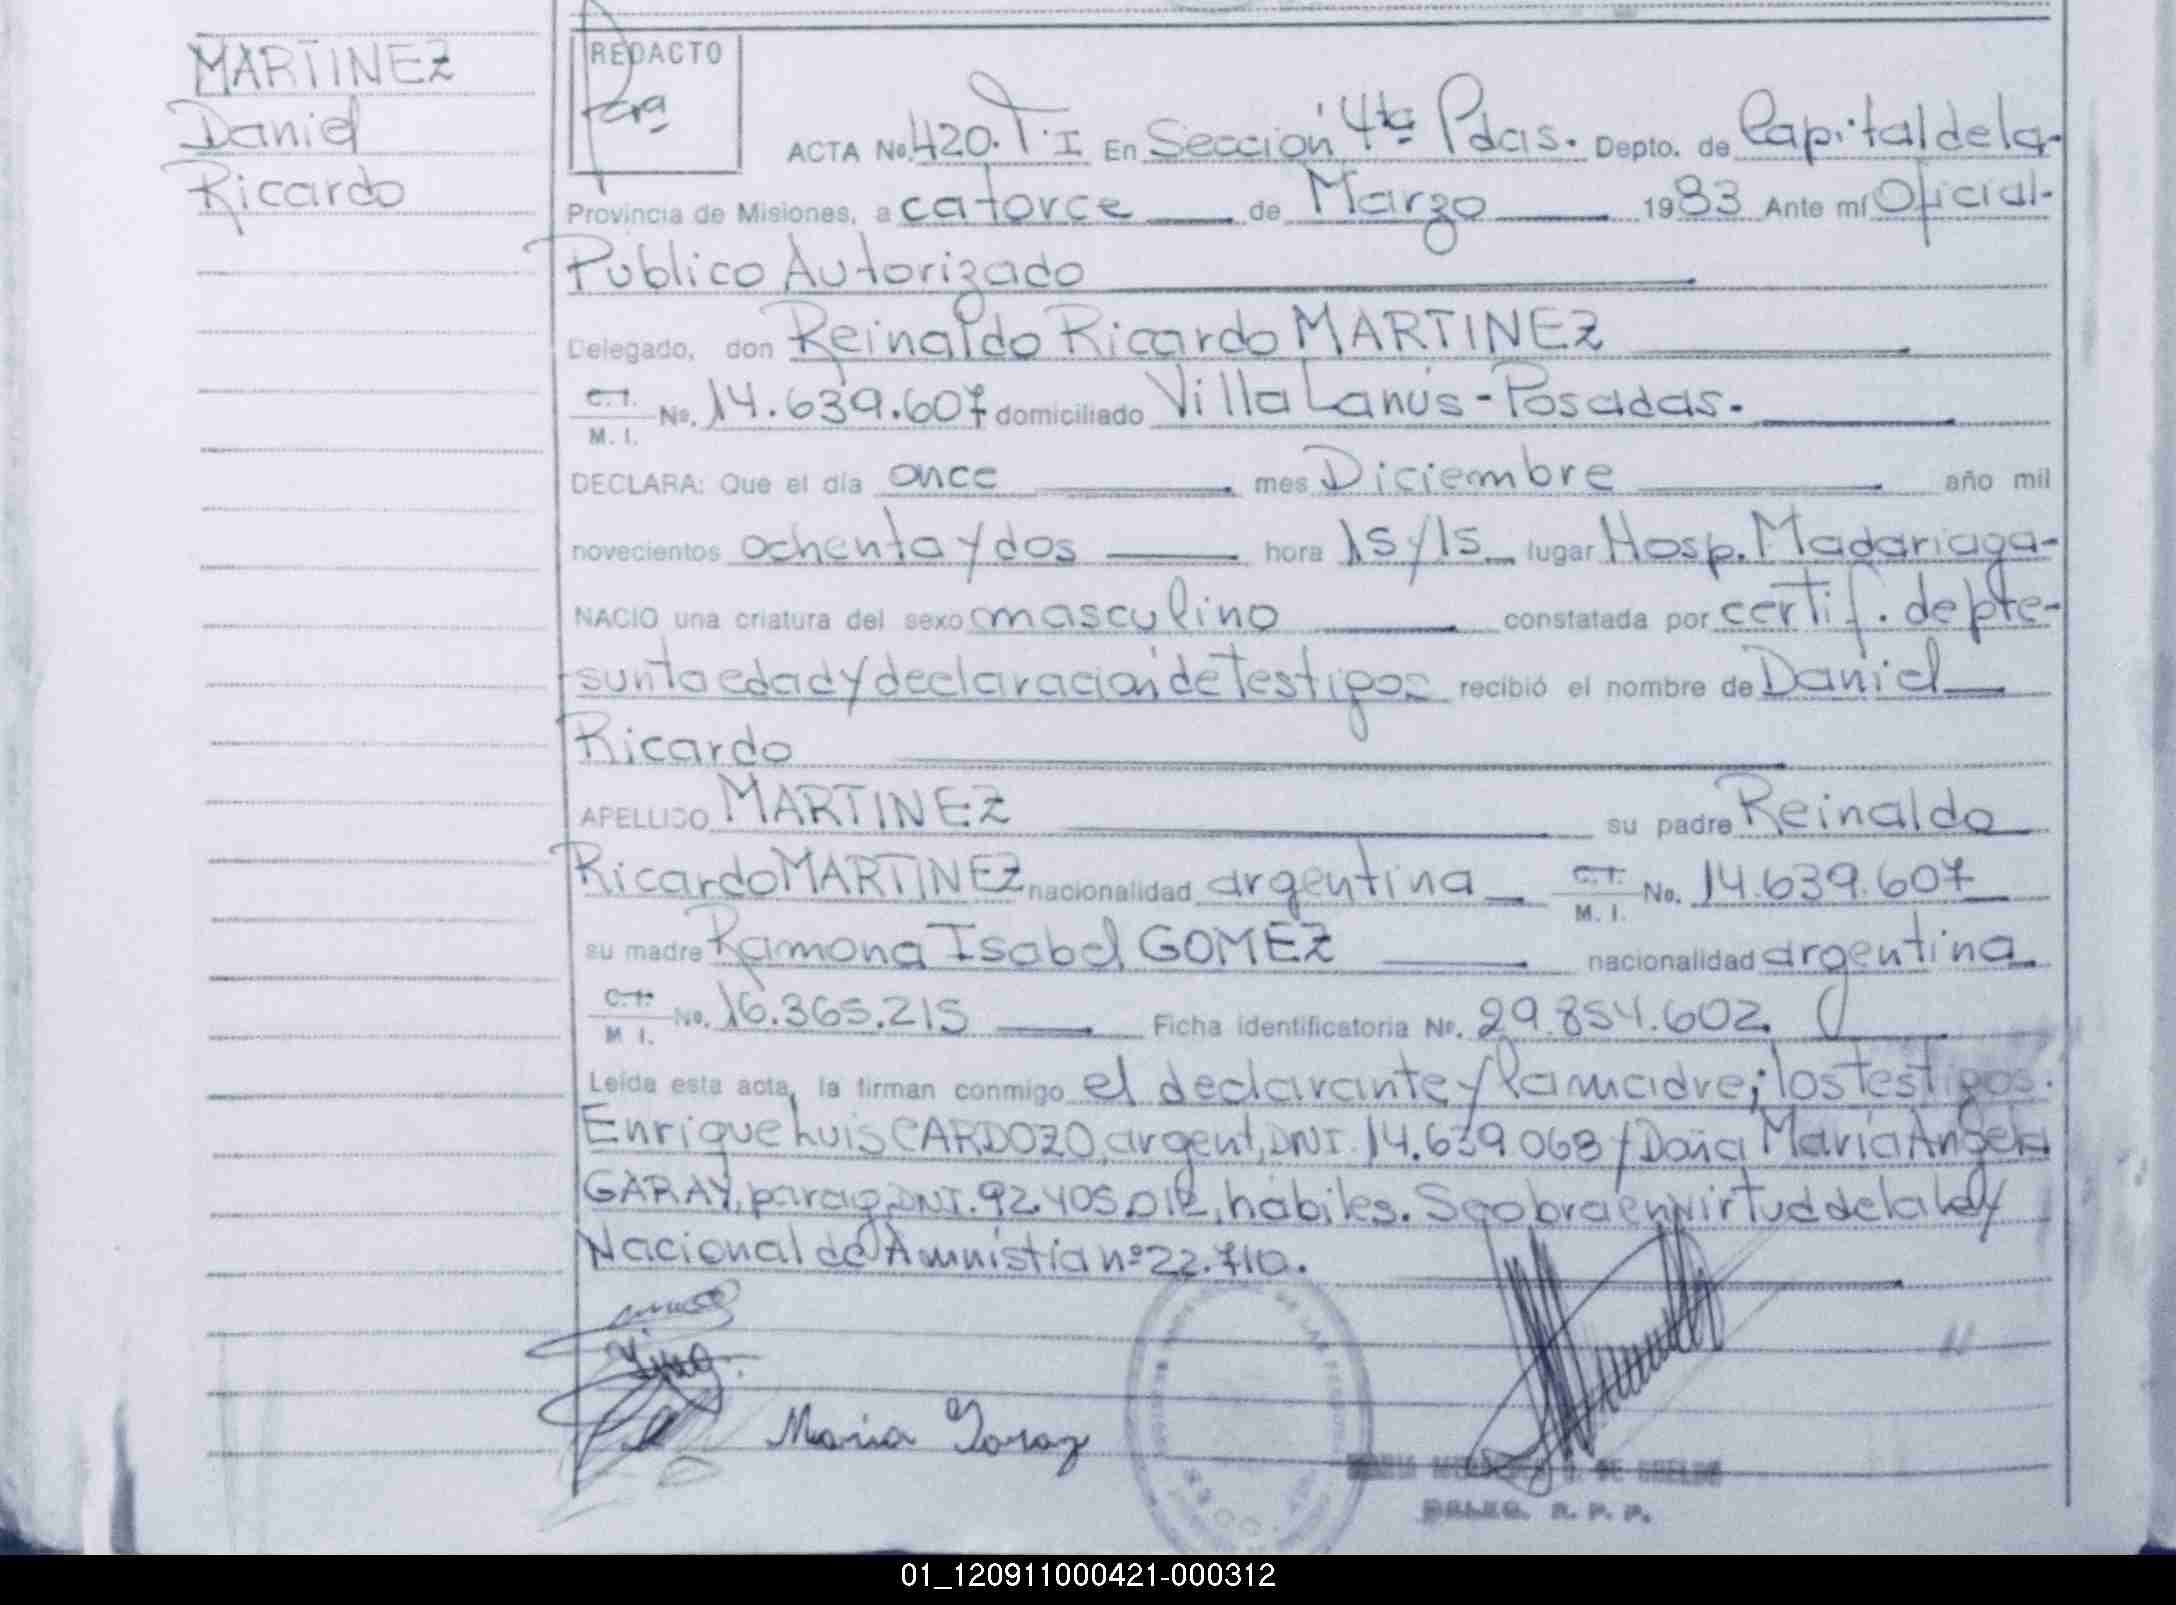 MARTINEZ
Daniel
Ricardo
REDACTO
ACTA No. 420. T. I En Sección 4ta Pdas. Depto. de Capital de la-
Provincia de Misiones, a catorce de Marzo 1983 Ante mí Oficial-
Publico Autorizado
Delegado, don Reinaldo Ricardo MARTINEZ
C. I. M. I. No. 14.639.607 domiciliado Villa Lanús - Posadas.
DECLARA: Que el día once mes Diciembre año mil
novecientos ochenta y dos hora 15 y 15 lugar Hosp. Madariaga-
NACIO una criatura del sexo masculino constatada por certif. de pre-
sunta edad y declaración de testigos recibió el nombre de Daniel
Ricardo
APELLIDO MARTINEZ su padre Reinaldo
Ricardo MARTINEZ nacionalidad argentina C. I. M. I. No. 14.639.607
su madre Ramona Isabel GOMEZ nacionalidad argentina
C. I. M. I. No. 16.365.215 Ficha identificatoria No. 29.854.602
Leída esta acta, la firman conmigo el declarante y la madre; los testigos.
Enrique Luis CARDOZO, argent, DNI. 14.639.068 y Doña María Angela
GARAY, parag, DNI. 92.405.012, hábiles. Se obra en virtud de la Ley
Nacional de Amnistía nº 22.710.
Maria Garay
DELEG. R. P. P.
01_120911000421-000312